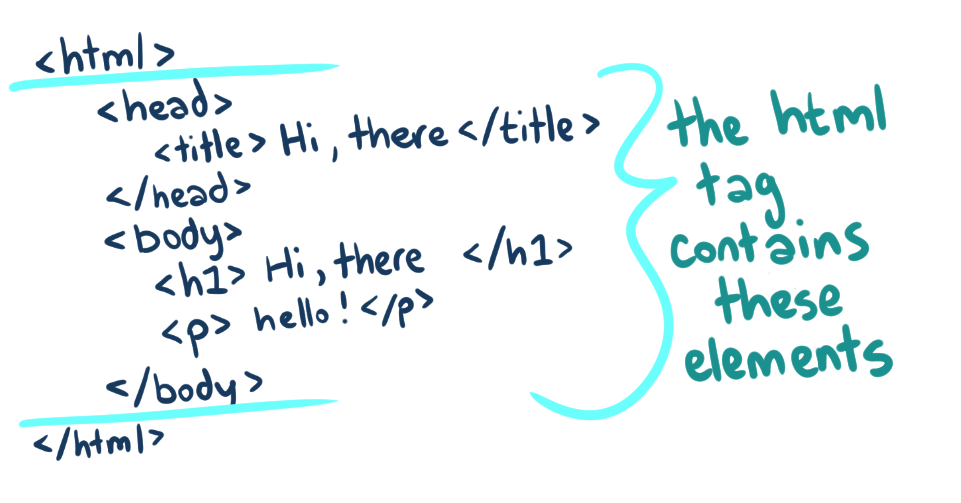 <html>
<head>
<title> Hi, there </title>
</head>
<body>
<h1> Hi, there </h1>
<p> hello! </p>
</body>
</html>
the html
tag
contains
these
elements